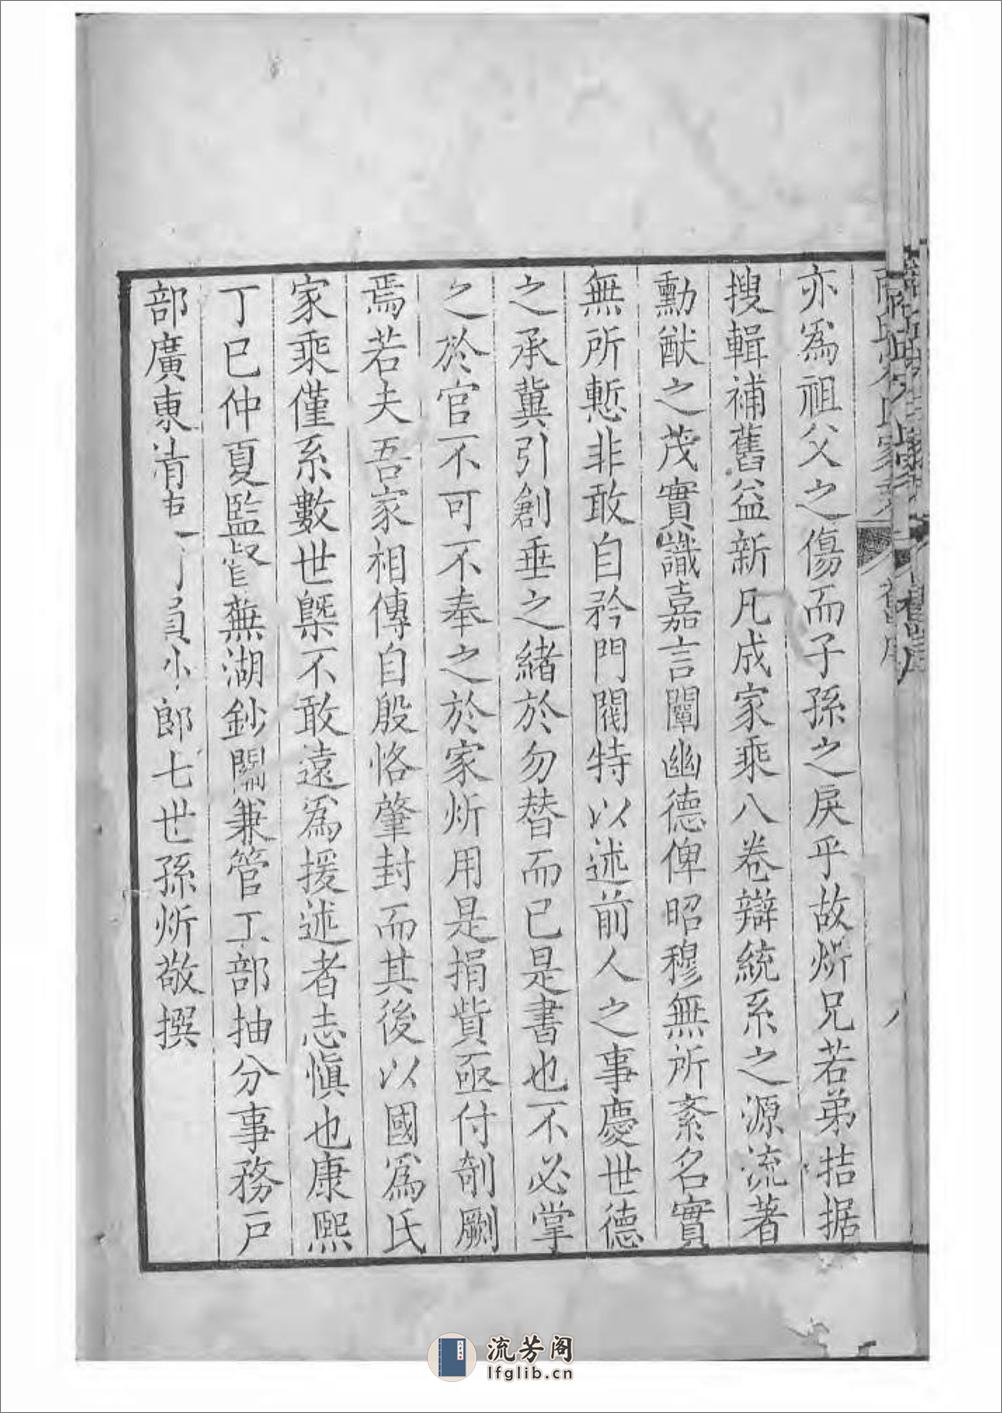 亦爲祖父之傷而子孫之戾乎故炘兄若弟拮据
搜輯補舊益新凡成家乘八卷辯統系之源流著
勳猷之茂實識嘉言闡幽德俾昭穆無所紊名實
無所慙非敢自矜門閥特以述前人之事慶世德
之承冀引創垂之緒於勿替而已是書也不必掌
之於官不可不奉之於家炘用是捐貲亟付剞劂
焉若夫吾家相傳自殷恪肇封而其後以國爲氏
家乘僅系數世槩不敢遠爲援述者志愼也康熙
丁巳仲夏監督蕪湖鈔關兼管工部抽分事務戶
部廣東清吏司員外郎七世孫炘敬撰
氏家乘
舊序
流芳阁
lfglib.cn